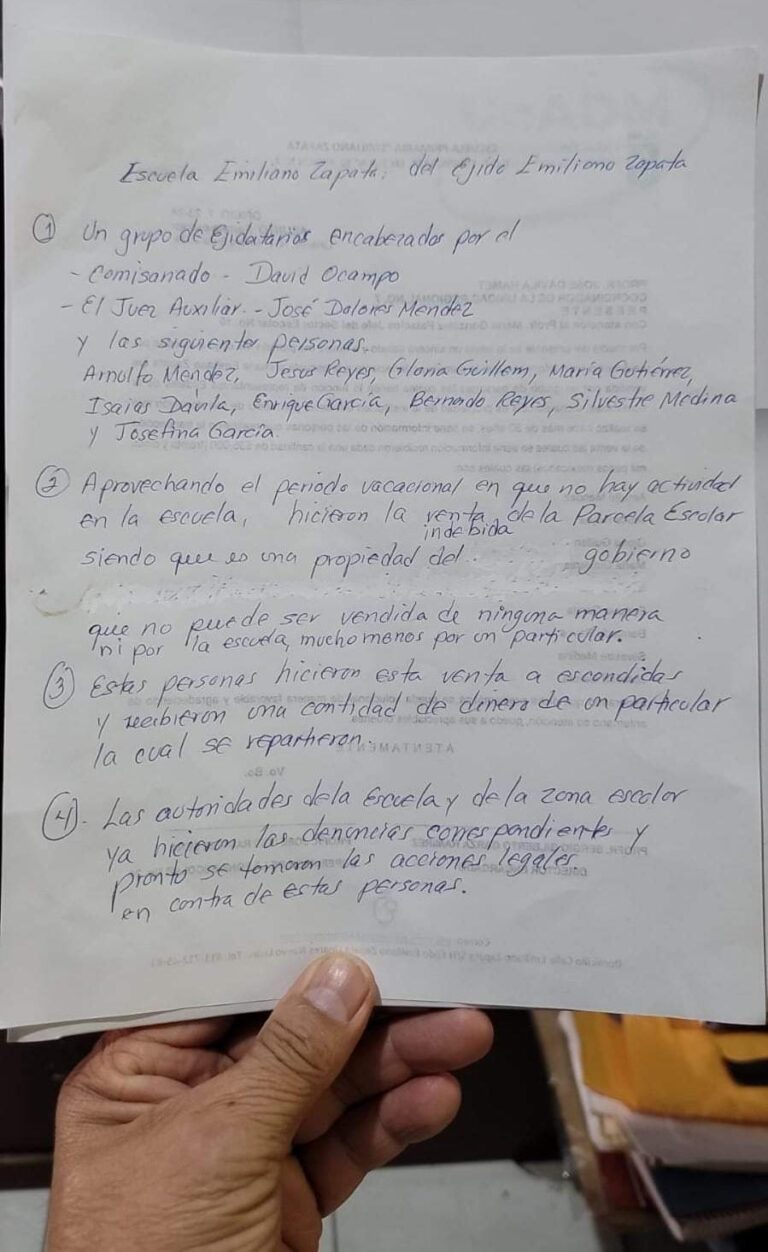 Escuela Emiliano Zapata: del Ejido Emiliano Zapata
① Un grupo de Ejidatarios encabezados por el
- Comisariado - David Ocampo
- El Juez Auxiliar. - José Dolores Mendez
y las siguientes personas.
Arnulfo Méndez, Jesus Reyes, Gloria Guillem, María Gutiérrez,
Isaias Dávila, Enrique García, Bernardo Reyes, Silvestre Medina
y Josefina García.
② Aprovechando el periodo vacacional en que no hay actividad
en la escuela, hicieron la venta de la Parcela Escolar
indebida
siendo que es una propiedad del gobierno
que no puede ser vendida de ninguna manera
ni por la escuela, mucho menos por un particular.
③ Estas personas hicieron esta venta a escondidas
y recibieron una cantidad de dinero de un particular
la cual se repartieron.
④. Las autoridades de la Escuela y de la zona escolar
ya hicieron las denuncias correspondientes y
pronto se tomaran las acciones legales
en contra de estas personas.